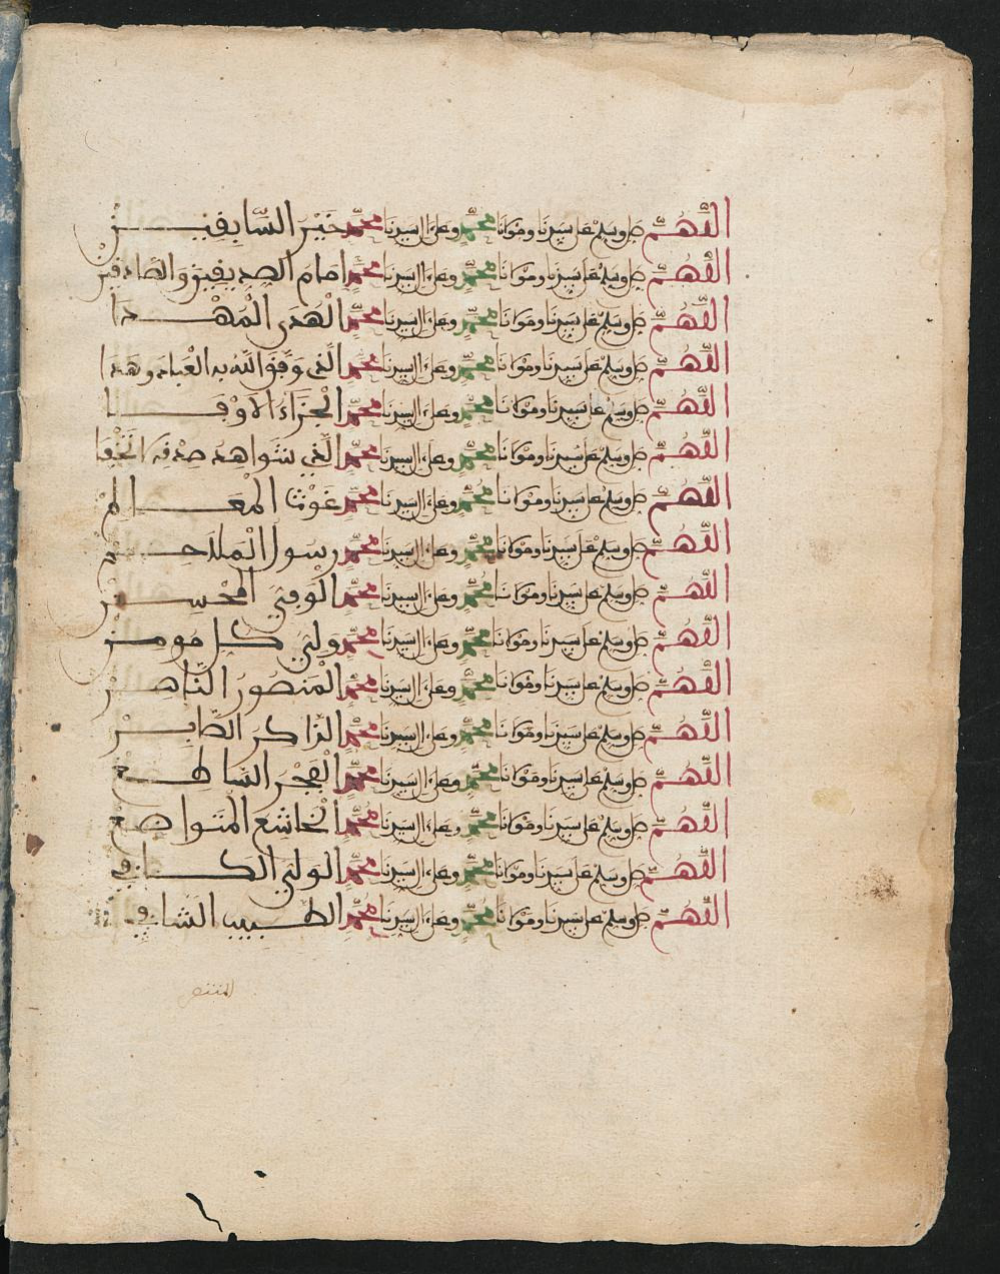 اللهم صل وسلم على سيدنا ومولانا محمد وعلى ءال سيدنا محمد خير السابقين
اللهم صل وسلم على سيدنا ومولانا محمد وعلى ءال سيدنا محمد امام الصديقين والصادقين
اللهم صل وسلم على سيدنا ومولانا محمد وعلى ءال سيدنا محمد الهدى المهدا
اللهم صل وسلم على سيدنا ومولانا محمد وعلى ءال سيدنا محمد الذي وفق الله به العباد وهدا
اللهم صل وسلم على سيدنا ومولانا محمد وعلى ءال سيدنا محمد الجزاء الاوفا
اللهم صل وسلم على سيدنا ومولانا محمد وعلى ءال سيدنا محمد الذي شواهد صدقه
اللهم صل وسلم على سيدنا ومولانا محمد وعلى ءال سيدنا محمد غوث
اللهم صل وسلم على سيدنا ومولانا محمد وعلى ءال سيدنا محمد رسول
اللهم صل وسلم على سيدنا ومولانا محمد وعلى ءال سيدنا محمد المحسن
اللهم صل وسلم على سيدنا ومولانا محمد وعلى ءال سيدنا محمد ولي كل مومن
اللهم صل وسلم على سيدنا ومولانا محمد وعلى ءال سيدنا محمد المنصور الناصر
اللهم صل وسلم على سيدنا ومولانا محمد وعلى ءال سيدنا محمد الذاكر الصابر
اللهم صل وسلم على سيدنا ومولانا محمد وعلى ءال سيدنا محمد الفجر الساطع
اللهم صل وسلم على سيدنا ومولانا محمد وعلى ءال سيدنا محمد الخاشع المتواضع
اللهم صل وسلم على سيدنا ومولانا محمد وعلى ءال سيدنا محمد الولي الكافي
اللهم صل وسلم على سيدنا ومولانا محمد وعلى ءال سيدنا محمد الطبيب الشافي